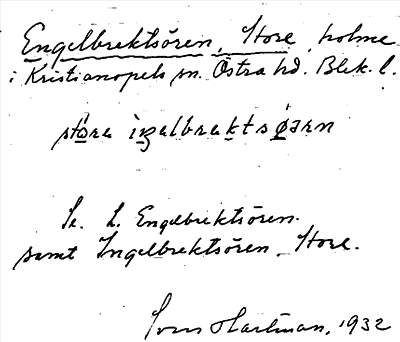 Engelbrektsören, Store, holme
i Kristianopels sn. Östra hd. Blek. l.
stora iŋəlbraktsøarn
Se L. Engelbrektsören.
samt Ingelbrektsören, Store.
Sven Hartman, 1932